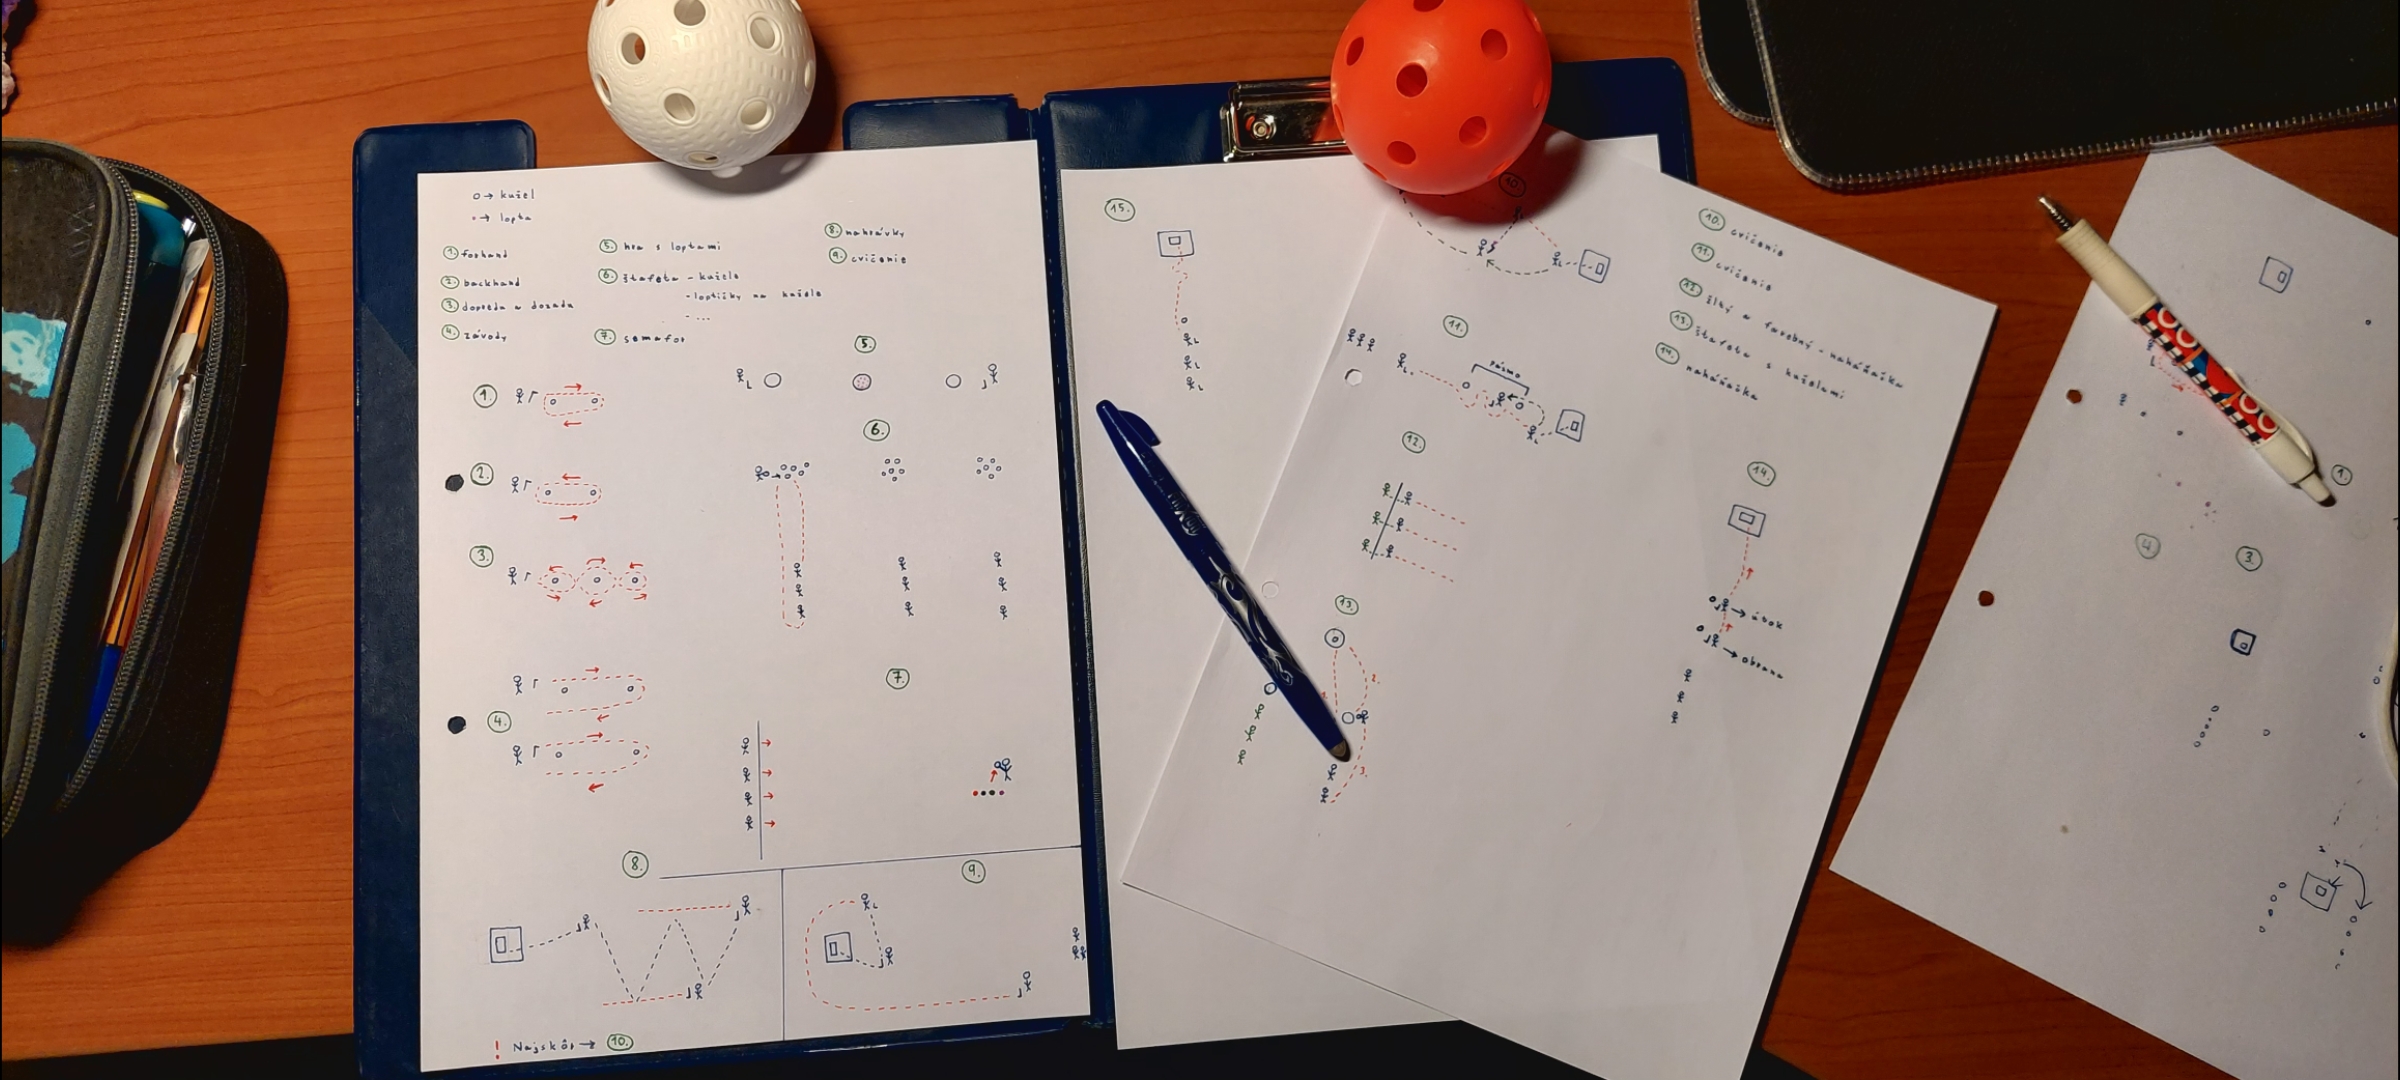 o → kužel
• → lopta
1. forhand
2. backhand
3. dopredu a dozadu
4. závody
5. hra s loptami
6. štafeta - kužele
- loptičky na kužele
- ...
7. semafor
8. nahrávky
9. cvičenie
1.
2.
3.
4.
5.
6.
7.
8.
9.
! Najskôr → 10.
15.
10.
10. cvičenie
11. cvičenie
12. žltý a farebný - naháňačka
13. štafeta s kužeľami
14. naháňačka
11.
pásmo
12.
13.
1.
2.
3.
14.
→ útok
→ obrana
1.
4.
3.